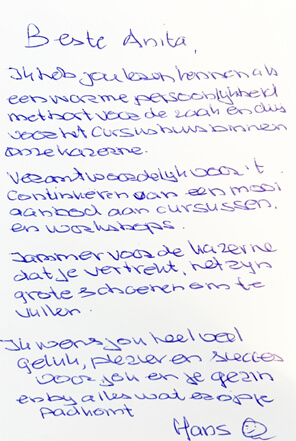 Beste Anita,
Ik heb jou leren kennen als
een warme persoonlijkheid
met hart voor de zaak en dus
voor het cursushuis binnen
onze kazerne.
Verantwoordelijk voor 't
continueren van een mooi
aanbod aan cursussen.
en workshops.
Jammer voor de kazerne
dat je vertrekt, het zijn
grote schoenen om te
vullen.
Ik wens jou heel veel
geluk, plezier en succes
voor jou en je gezin
en by alles wat er op je
pad komt
Hans